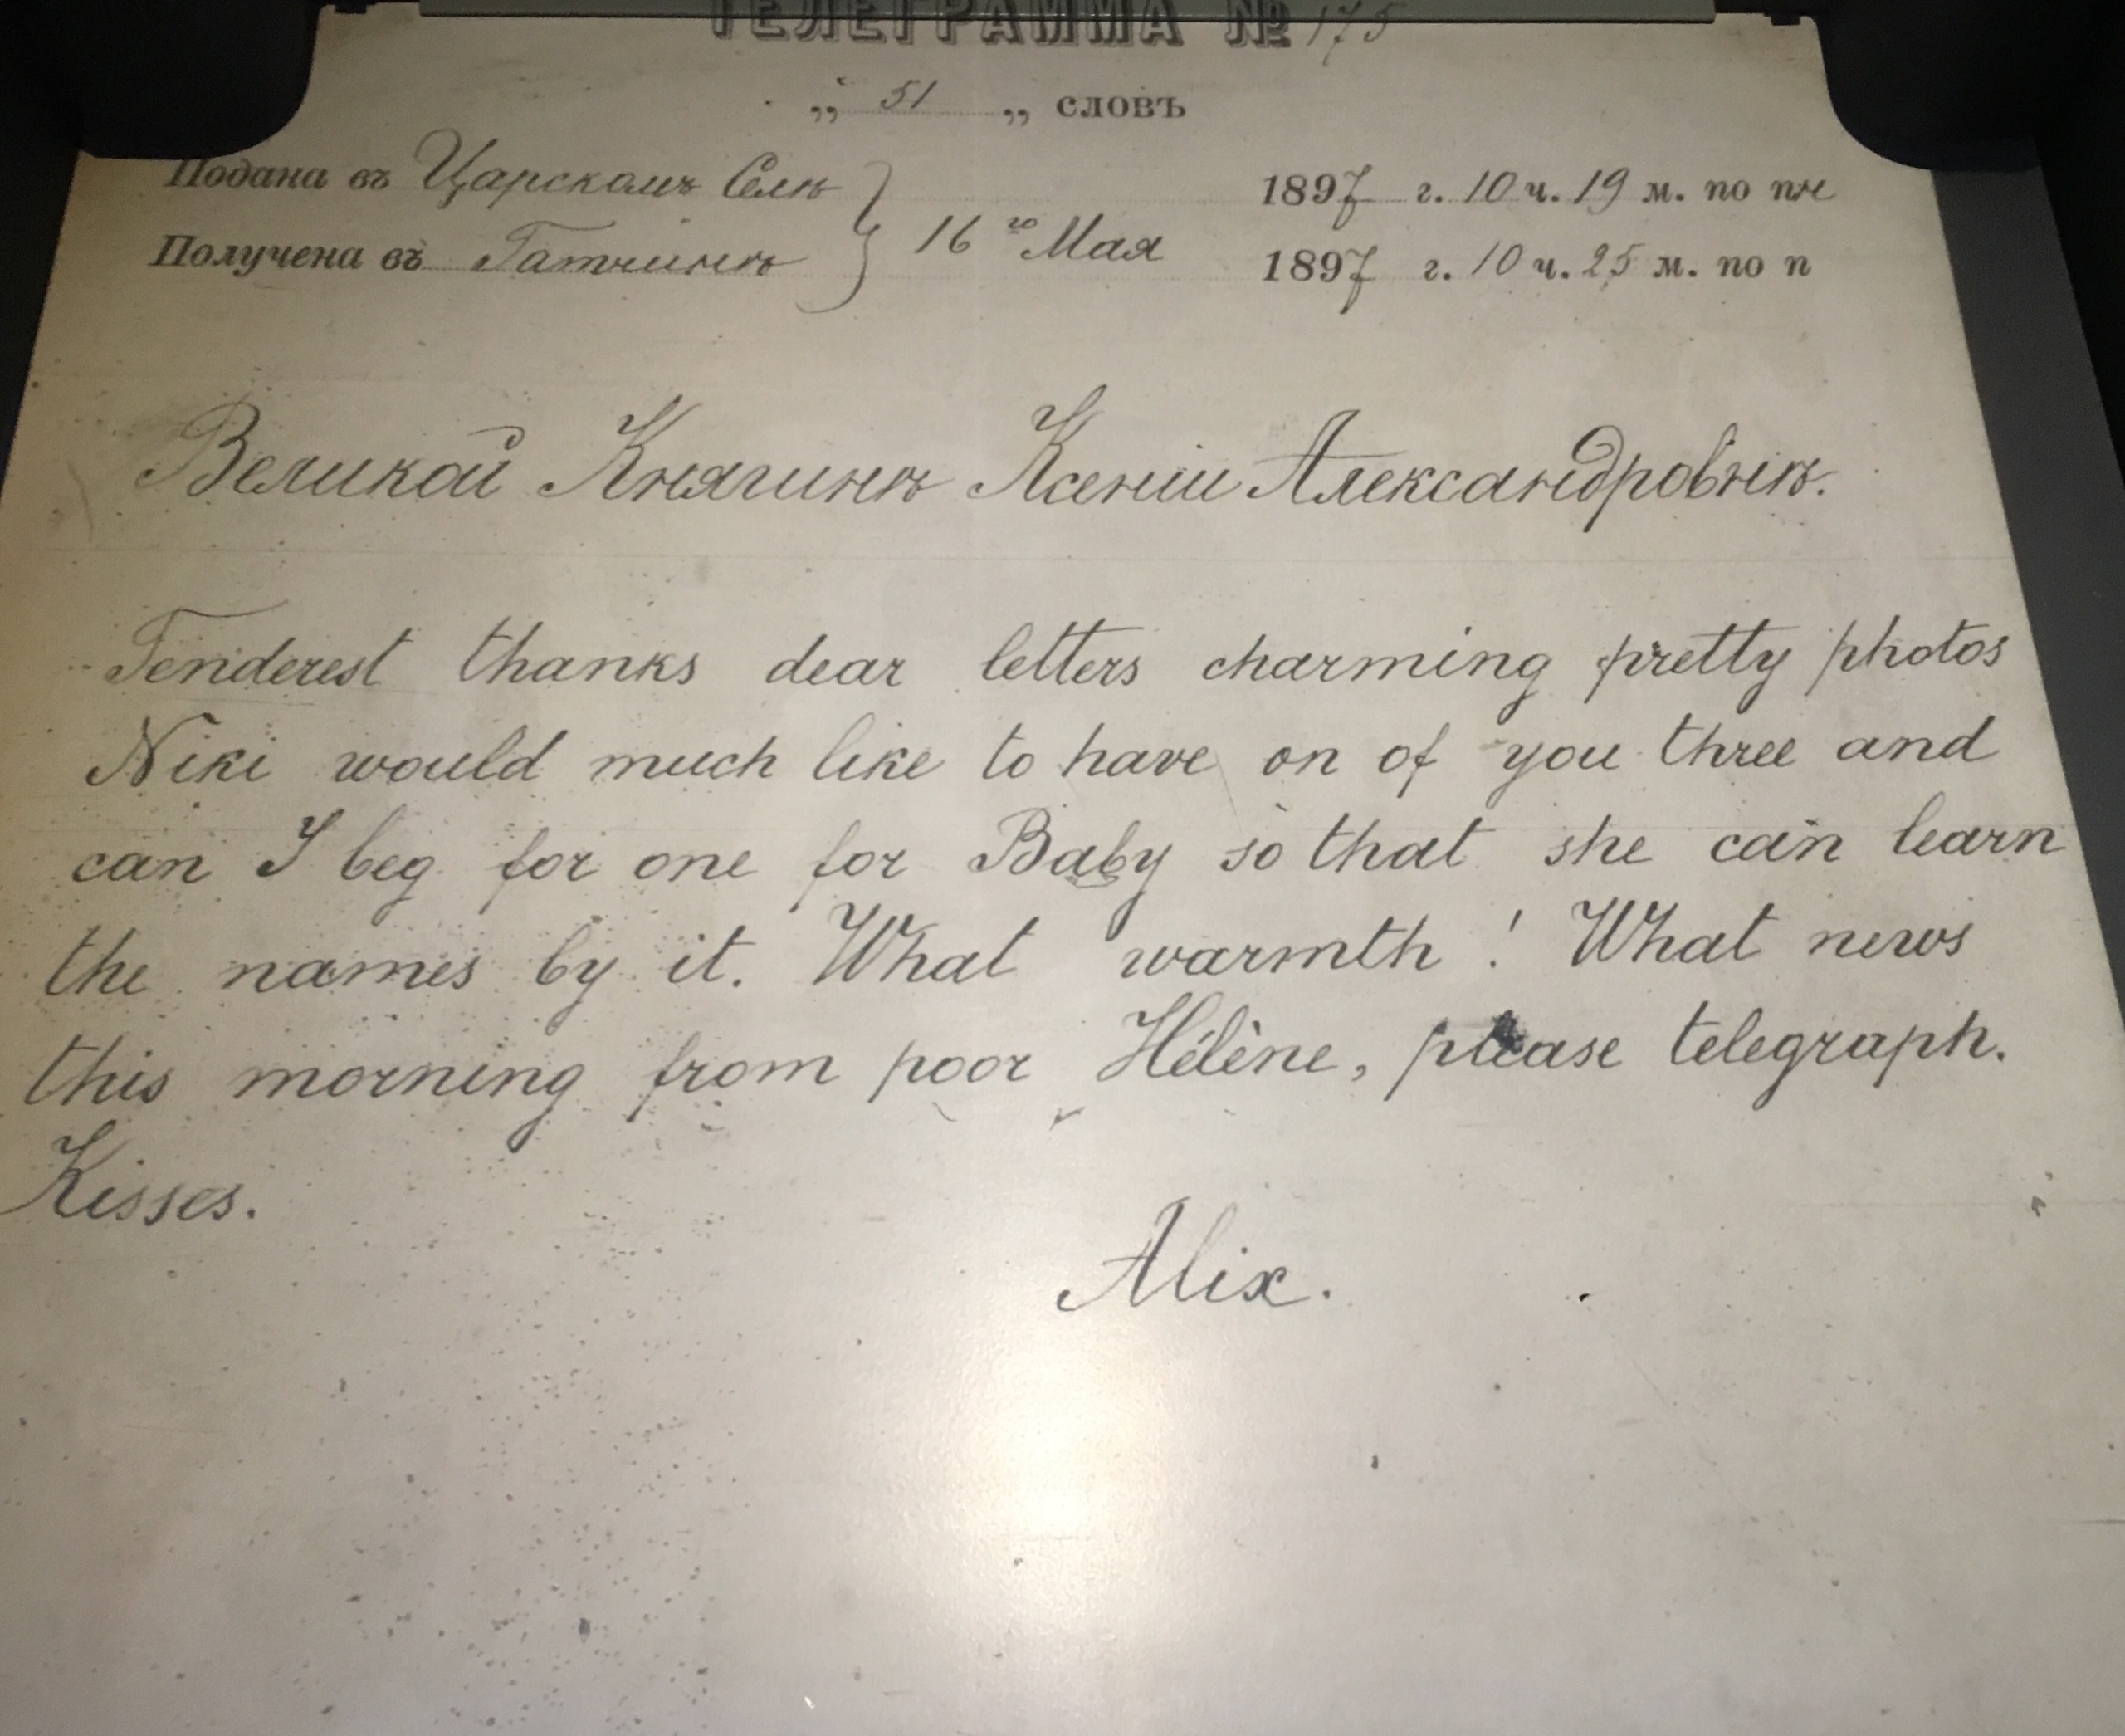 ТЕЛЕГРАММА № 175
„ 51 „ словъ
Подана въ Царскомъ Селѣ } 16го Мая 1897 г. 10 ч. 19 м. по пл
Получена въ Гатчинѣ 1897 г. 10 ч. 25 м. по п
Великой Княгинѣ Ксеніи Александровнѣ.
Tenderest thanks dear letters charming pretty photos
Niki would much like to have on of you three and
can I beg for one for Baby so that she can learn
the names by it. What warmth! What news
this morning from poor Hélène, please telegraph.
Kisses.
Alix.